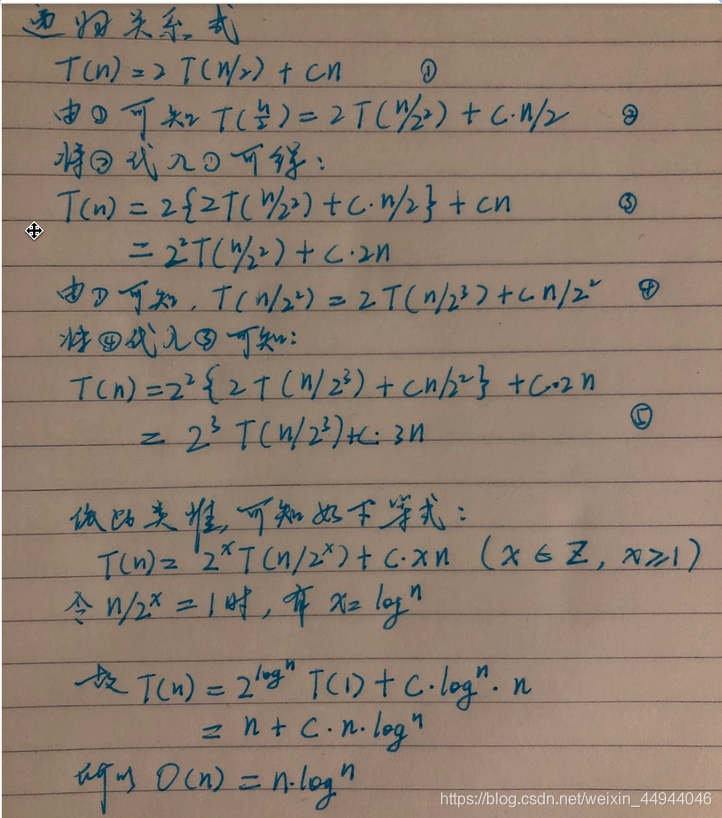 递归关系式
T(n) = 2 T(n/2) + cn ①
由①可知 T(n/2) = 2 T(n/2²) + c·n/2 ②
将②代入①可得:
T(n) = 2{2T(n/2²) + c·n/2} + cn ③
= 2²T(n/2²) + c·2n
由①可知, T(n/2²) = 2T(n/2³) + c n/2² ④
将④代入③可知:
T(n) = 2²{2T(n/2³) + cn/2²} + c·2n
= 2³ T(n/2³) + c·3n ⑤
依此类推,可知如下等式:
T(n) = 2ˣT(n/2ˣ) + c·xn (x∈Z, x≥1)
令 n/2ˣ = 1时, 有 x = logⁿ
故 T(n) = 2^logⁿ T(1) + c·logⁿ·n
= n + c·n·logⁿ
所以 O(n) = n·logⁿ
https://blog.csdn.net/weixin_44944046